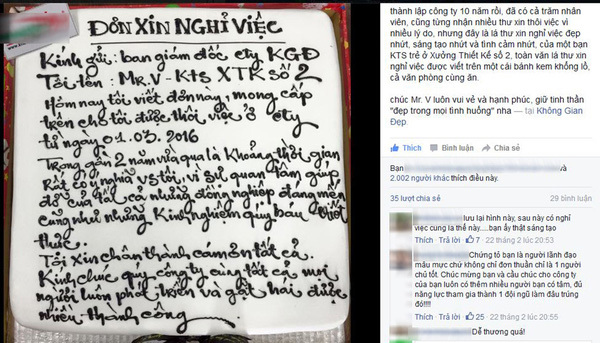 ĐƠN XIN NGHỈ VIỆC
Kính gửi: ban giám đốc cty KGĐ
Tôi tên: Mr.V - Kts XTK số 2
Hôm nay tôi viết đơn này, mong cấp
trên cho tôi được thôi việc ở cty
từ ngày 01.03.2016
Trong gần 2 năm vừa qua là khoảng thời gian
Rất có ý nghĩa với tôi, vì sự quan tâm giúp
đỡ của tất cả những đồng nghiệp đáng mến
cũng như những kinh nghiệm quý báu
thức.
Tôi xin chân thành cảm ơn tất cả.
Kính chúc quý công ty cùng tất cả mọi
người luôn phát triển và gặt hái được
nhiều thành công
thành lập công ty 10 năm rồi, đã có cả trăm nhân
viên, cũng từng nhận nhiều thư xin thôi việc vì
nhiều lý do, nhưng đây là lá thư xin nghỉ việc đẹp
nhứt, sáng tạo nhứt và tình cảm nhứt, của một bạn
KTS trẻ ở Xưởng Thiết Kế số 2, toàn văn lá thư xin
nghỉ việc được viết trên một cái bánh kem khổng lồ,
cả văn phòng cùng ăn.
chúc Mr. V luôn vui vẻ và hạnh phúc, giữ tinh thần
"đẹp trong mọi tình huống" nha — tại Không Gian
Đẹp.
Thích Bình luận Chia sẻ
Bạn và
2.002 người khác thích điều này.
35 lượt chia sẻ 29 bình luận
lưu lại hình này, sau này có nghỉ
việc cung la thế này.....bạn ấy thật sáng tạo
Thích · Trả lời · 7 · 22 tháng 2 lúc 20:53
Chứng tỏ bạn là người lãnh đạo
mẫu mực chứ không chỉ đơn thuần chỉ là 1 người
chủ tốt. Chúc mừng bạn và cầu chúc cho công ty
của bạn luôn có thêm nhiều người bạn có tâm, đủ
năng lực tham gia thành 1 đội ngũ làm đâu trúng
đó!!!!
Thích · Trả lời · 25 · 22 tháng 2 lúc 22:55
Dễ thương quá!